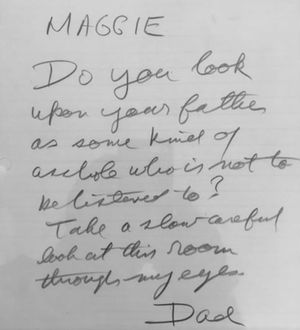 MAGGIE
Do you look
upon your father
as some kind of
asshole who is not to
be listened to?
Take a slow careful
look at this room
through my eyes.
Dad